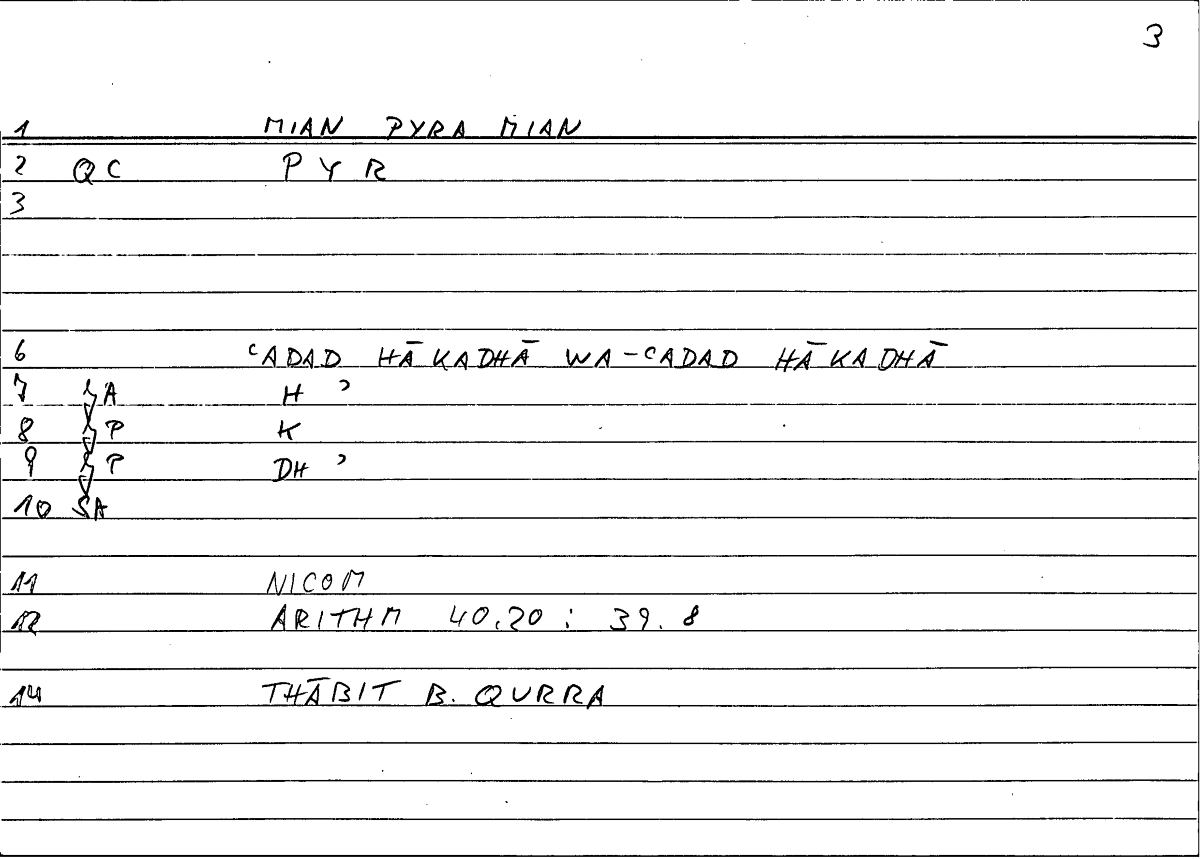 3
1 MIAN PYRA MIAN
2 QC P Y R
3
6 ʿADAD HĀKADHĀ WA-ʿADAD HĀKADHĀ
7 A H ʾ
8 P K
9 P DH ʾ
10 A
11 NICOM
12 ARITHM 40.20 : 39.8
14 THĀBIT B. QURRA